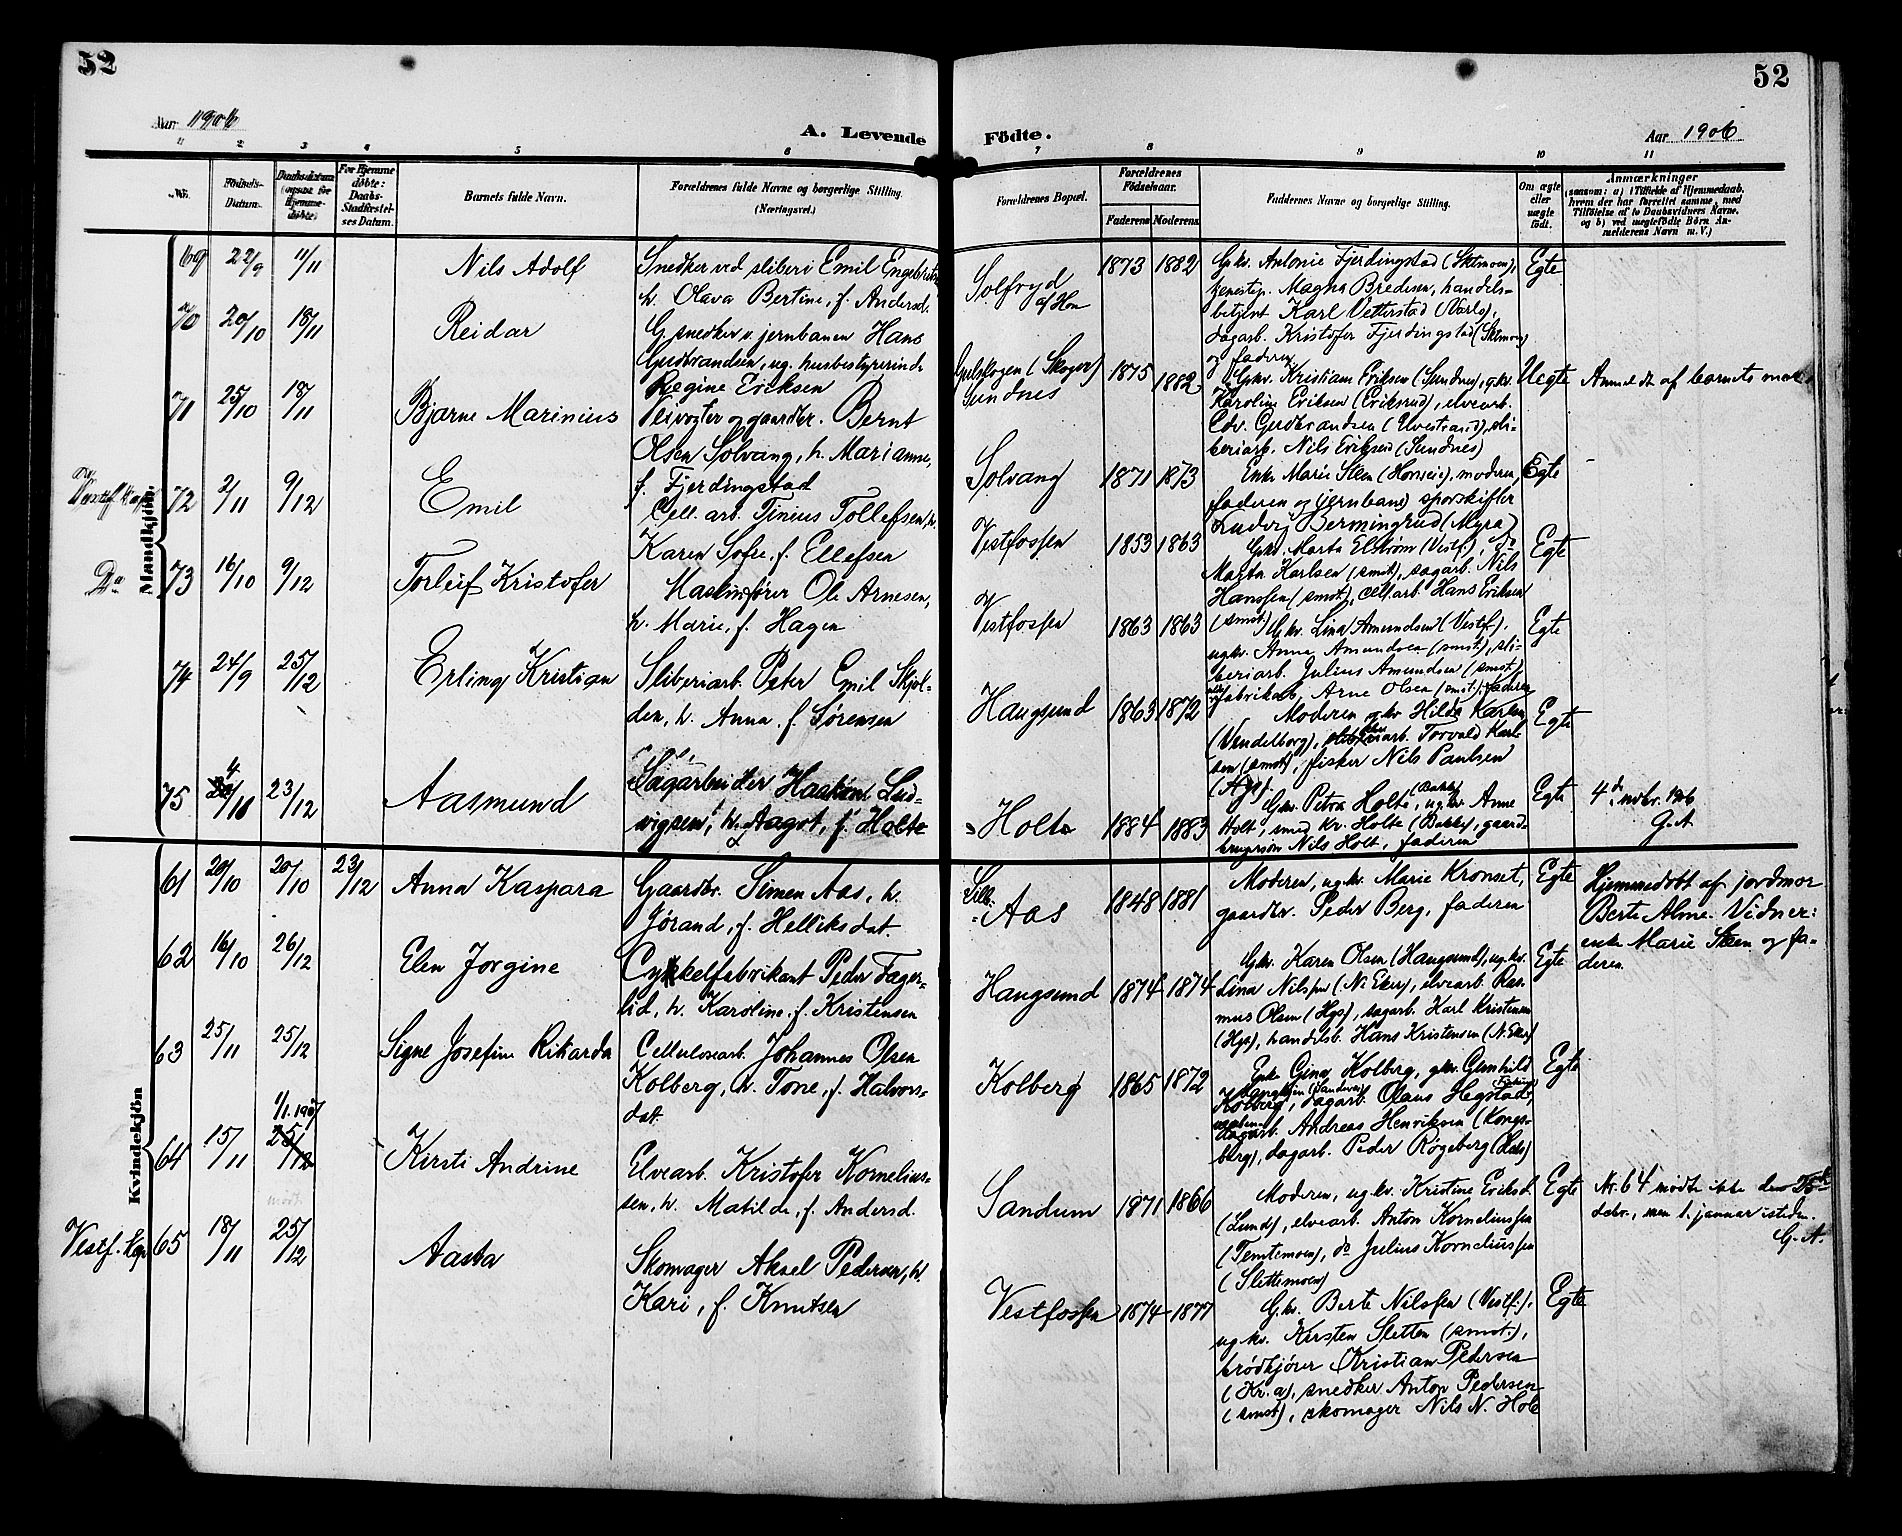 52
52
Aar 1906
A. Levende
Födte.
Aar 1906
1 2 3 4 5 6 7 8 9 10 11
No.
Födsels-
Datum.
Daabsdatum
For Hjemme
döbte:
Daabs-
Stadfæstel-
ses Datum.
Barnets fulde Navn.
Forældrenes fulde Navne og borgerlige Stilling.
(Næringsvei.)
Forældrenes Bopæl.
Forældrenes
Födselsaar.
Faderens
Moderens
Faddernes Navne og borgerlige Stilling.
Om ægte
eller
uægte
födt.
Anmærkninger
(saasom: a) i Tilfælde af Hjemmedaab,
hvem der har forrettet samme, med
Tilföielse af to Daabsvidners Navne,
og b) ved uægtefödte Börn An-
melderens Navn m. V.)
Mandkjön.
69 22/9 11/11 Nils Adolf
Snedker ved sliberi Emil Engebretsen,
h. Olava Bertine, f. Andersd.
Solfryd
af Hon
1873 1882
Gkv. Antonie Fjerdingstad (Skimoen),
tjenestep. Magna Bredesen, handels-
betjent Karl Vetterstad (Varlo),
dagarb. Kristofer Fjerdingstad (Skimoen)
og faderen
Egte
70 20/10 18/11 Reidar
G. snedker v. jernbanen Hans
Gudbrandsen, ug. husbestyrerinde
Regine Eriksen
Gulskogen (Skoger)
Sundnes
1875 1882
Gkv. Kristiane Eriksen (Sundnes), gkv.
Karoline Eriksen (Eriksrud), elvearb.
Edv. Gudbrandsen (Elvestrand), sli-
beriarb. Nils Eriksen (Sundnes)
Uegte
Anmeldt af barnets mor
71 25/10 18/11 Bjarne Marinius
Veivogter og gaardbr. Bernt
Olsen Solvang, h. Marianne,
f. Fjerdingstad
Solvang
1871 1873
Enke Marie Steen (Horsei), moderen,
faderen og jernbane sporskifter
Ludvig Bermingrud (Myra)
Egte
Vestf. kap.
72 2/11 9/12 Emil
Cell. arb. Tinius Tollefsen, h.
Karen Sofie, f. Ellefsen
Vestfossen
1853 1863
Gkv. Marta Elstrøm (Vestf.), do
Marta Karlsen (smst), sagarb. Nils
Hanssen (smst), cell. arb. Hans Eriksen
(smst)
Egte
Do
73 16/10 9/12 Torleif Kristofer
Maskinfører Ole Arnesen,
h. Marie, f. Hagen
Vestfossen
1863 1863
Gkv. Lina Amundsen (Vestf.),
ugkv. Anna Amundsen (smst), sli-
beriarb. Julius Amundsen (smst),
fabrikarb. Arne Olsen (smst), faderen
Egte
74 24/9 25/12 Erling Kristian
Sliberiarb. Peter Emil Skjol-
den, h. Anna, f. Sørensen
Haugsund
1863 1872
Moderen, ugkv. Hilda Karlsen
(Vendelborg), arb. Torvald Karl-
sen (smst), fisker Nils Paulsen
(Hgs).
Egte
75 4/11 23/12 Aasmund
Sagarbeider Haakon Lud-
vigsen, h. Aagot, f. Holte
Holte
1884 1883
Gkv. Petra Holte (Bakke), ugkv. Anne
Holt, smed Kr. Holte (Bakke), gaard-
brugersøn Nils Holt, faderen
Egte
4de novbr. 1906
G. A.
Kvindekjön
61 20/10 20/10 23/12 Anna Kaspara
Gaardbr. Simen Aas, h.
Jørand, f. Helliksdat.
Aas
1848 1881
Moderen, ugkv. Marie Kronset,
gaardbr. Peder Berg, faderen
Egte
Hjemmedøbt af jordmor
Berte Alme. Vidner:
enke Marie Steen og fa-
deren.
62 16/10 26/12 Elen Jorgine
Cykkelfabrikant Peder Fager-
lid, h. Karoline, f. Kristensen
Haugsund
1874 1874
Gkv. Karen Olsen (Haugsund), ugkv.
Lina Nilsen (N. Eker), elvearb. Ras-
mus Olsen (Hgs), sagarb. Karl Kristensen
(Hgs), handelsb. Hans Kristensen (N. Eker)
Egte
63 25/11 25/12 Signe Josefine Rikarda
Cellulosearb. Johannes Olsen
Kolberg, h. Tone, f. Halvors-
dat.
Kolberg
1865 1872
Enke Gina Kolberg, gkv. Gunhild
Kolberg, dagarb. Olaus Hegstad,
dagarb. Andreas Henriksen (Kongs-
berg), dagarb. Peder Røgeberg
Egte
64 15/11 1/1. 1907 25/12 Kirsti Andrine
Elvearb. Kristofer Kornelius-
sen, h. Matilde, f. Andersd.
Sandum
1871 1866
Moderen, ugkv. Kristine Eriksd.
(Lund), elvearb. Anton Korneliussen
(Temtemoen), do Julius Korneliussen
(Slettemoen)
Egte
Nr. 64 mødte ikke den 25de
decbr., men 1. januar isteden.
G. A.
Vestf. kap.
65 18/11 25/12 Aasta
Skomager Aksel Pedersen, h.
Kari, f. Knutsen
Vestfossen
1874 1877
Gkv. Berte Nilssen (Vestf.),
ugkv. Kirsten Sletten (smst.),
brødkjører Kristian Pedersen
(Kr.a), snedker Anton Pedersen
(smst), skomager Nils N. Hob
Egte